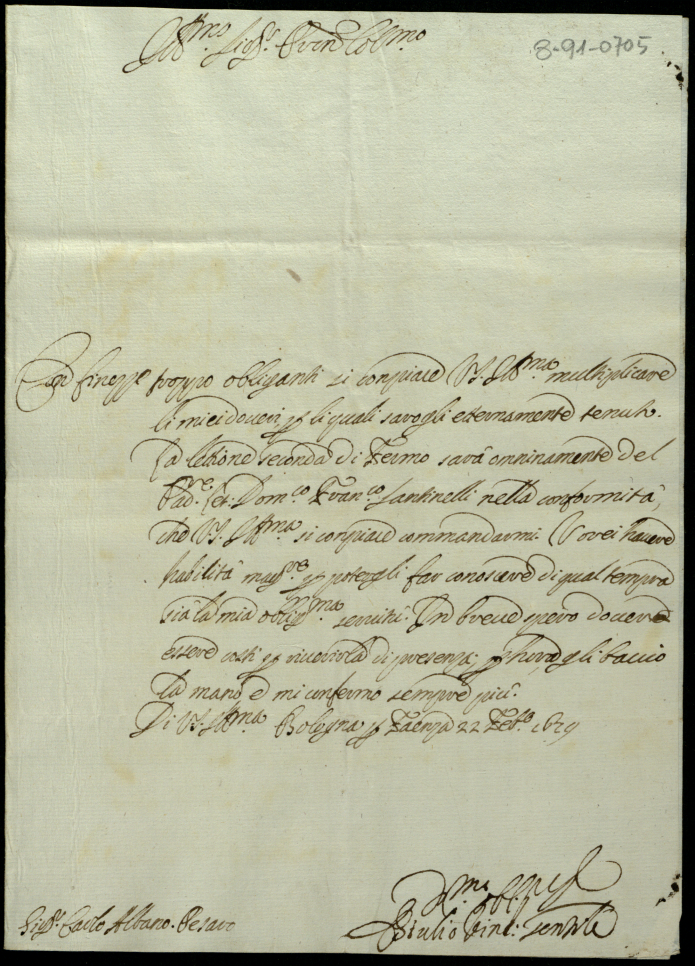 Ill.mo Sig.r Pron Coll.mo
8-91-0705
Con finezze troppo obliganti si compiace V.S. Ill.ma multiplicare
li miei doveri, p li quali sarogli etternamente tenuto.
La lettione seconda di Fermo sarà omninamente del
Pad.re Let. Dom.co Fran.co Santinelli nella conformità,
che V.S. Ill.ma si compiace commandarmi. Vorei havere
habilità magg.re p potergli far conoscere di qual tempra
sia la mia oblig.ma servitù. In breve spero dovere
essere costì p riverirla di presenza; p hora gli baccio
la mano e mi confermo sempre più.
Di V.S. Ill.ma Bologna p Faenza 22 Feb.o
Sig.r Carlo Albano. Pesaro
Giulio Vinc. Gentile